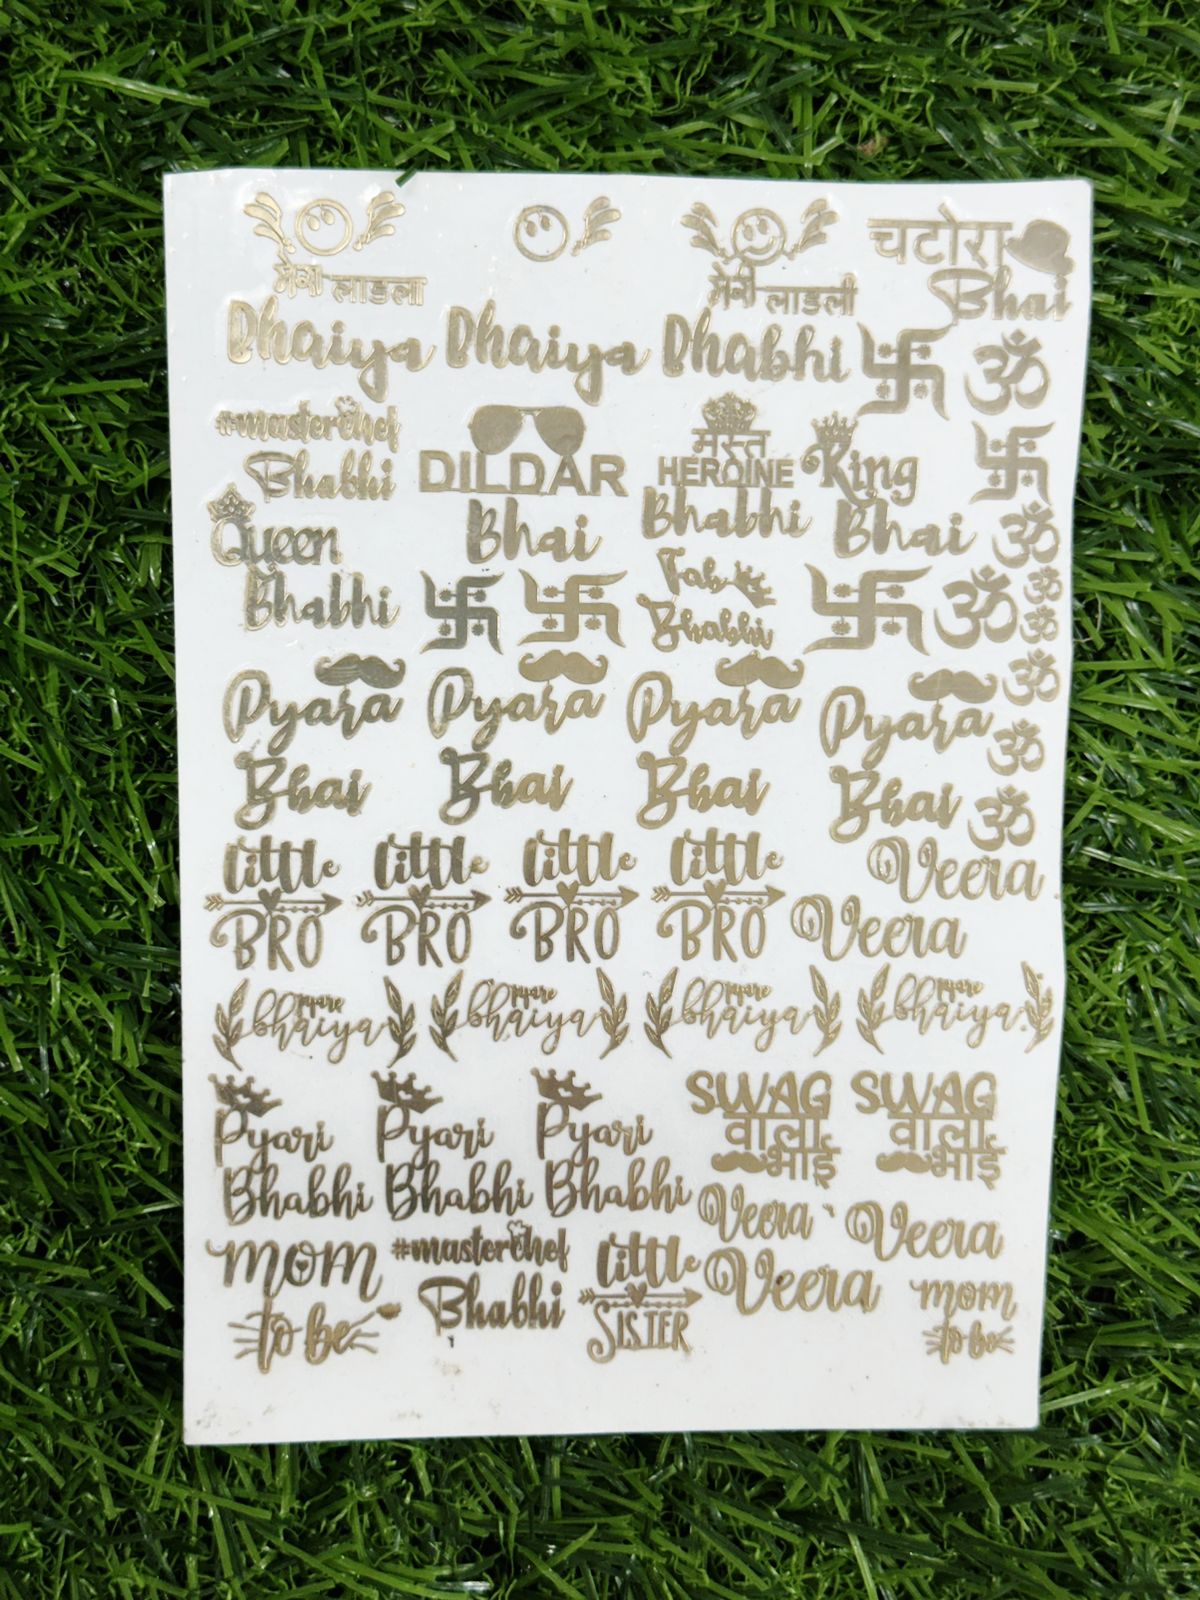 मेरा लाडला
मेरी लाडली
चटोरा
Bhai
Bhaiya
Bhaiya
Bhabhi
ॐ
#masterchef
Bhabhi
DILDAR
Bhai
मस्त
HEROINE
Bhabhi
King
Bhai
ॐ
Queen
Bhabhi
Fab
Bhabhi
ॐ
ॐ
ॐ
Pyara
Bhai
Pyara
Bhai
Pyara
Bhai
Pyara
Bhai
ॐ
ॐ
ॐ
little
BRO
little
BRO
little
BRO
little
BRO
Veera
Veera
pyare
bhaiya
pyare
bhaiya
pyare
bhaiya
pyare
bhaiya
Pyari
Bhabhi
Pyari
Bhabhi
Pyari
Bhabhi
SWAG
वाला
भाई
SWAG
वाला
भाई
Veera
Veera
mom
to be
#masterchef
Bhabhi
little
SISTER
Veera
mom
to be